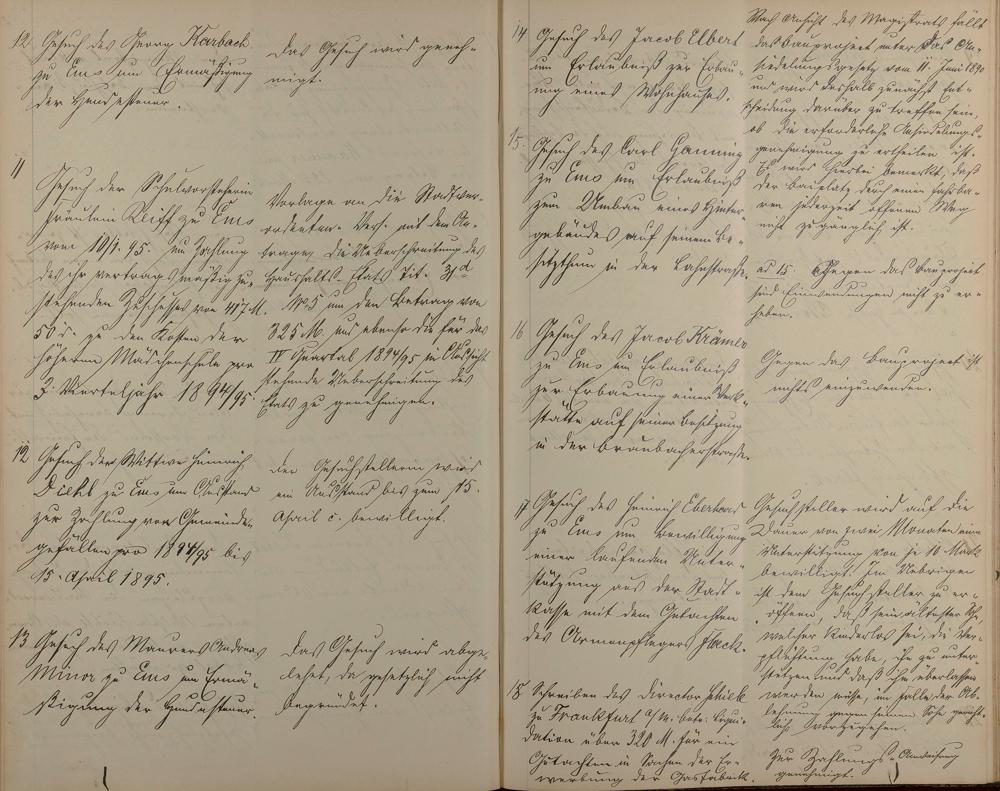 12 Gesuch des Georg Karbach
zu Ems um Ermäßigung
der Hundesteuer.
Das Gesuch wird geneh-
migt.
11
Gesuch der Schulvorsteherin
Fräulein Reiff zu Ems
vom 19/1. 95. um Zahlung
des ihr vertragsmäßig zu-
stehenden Zuschusses von 417 M.
50 d. zu den Kosten der
höheren Mädchenschule pro
3. Vierteljahr 1894/95.
Vorlage an die Stadtver-
ordneten-Vers. mit dem An-
trage, die Ueberschreitung des
Haushalts-Etats Tit.
No 5 um den Betrag von
325 M. und ebenso die für das
IV Quartal 1894/95 in Aussicht
stehende Ueberschreitung des
Etats zu genehmigen.
12 Gesuch der Wittwe Heinrich
Diehl zu Ems um Ausstand
zur Zahlung von Gemeinde-
gefällen pro 1894/95 bis
15. April 1895.
Der Gesuchstellerin wird
ein Ausstand bis zum 15.
April c. bewilligt.
13 Gesuch des Maurers Andreas
Minor zu Ems um Ermä-
ßigung der Hundesteuer.
Das Gesuch wird abge-
lehnt, da gesetzlich nicht
begründet.
14 Gesuch des Jacob Elbert
um Erlaubniß zur Erbau-
ung eines Wohnhauses.
Nach Ansicht des Magistrats fällt
das Bauproject unter das An-
siedelungsgesetz vom 11. Juni 1890
und wird deshalb zunächst Ent-
scheidung darüber zu treffen sein,
ob die erforderliche Ansiedelungs-
genehmigung zu ertheilen ist.
Es wird hierbei bemerkt, daß
der Bauplatz durch einen fahrba-
ren jederzeit offenen Weg
nicht zugänglich ist.
15. Gesuch des Carl Ganning
zu Ems um Erlaubniß
zum Umbau eines Hinter-
gebäudes auf seinem Be-
sitzthum in der Lahnstraße.
ad 15. Gegen das Bauproject
sind Einwendungen nicht zu er-
heben.
16 Gesuch des Jacob Krämer
zu Ems um Erlaubniß
zur Erbauung einer Werk-
stätte auf seiner Besitzung
in der Braubacherstraße.
Gegen das Bauproject ist
nichts einzuwenden.
17 Gesuch des Heinrich Eberhard
zu Ems um Bewilligung
einer laufenden Unter-
stützung aus der Stadt-
kasse mit dem Gutachten
des Armenpflegers Flack.
Gesuchsteller wird auf die
Dauer von zwei Monaten eine
Unterstützung von je 10 Mark
bewilligt. Im Uebrigen
ist dem Gesuchsteller zu er-
öffnen, daß sein ältester Sohn,
welcher kinderlos sei, die Ver-
pflichtung habe, ihn zu unter-
stützen und daß ihm überlassen
werden müsse, im Falle der Ab-
lehnung gegen seinen Sohn gericht-
lich vorzugehen.
18 Schreiben des Director
zu Frankfurt a/M. betr. Liqui-
dation über 320 M. für ein
Gutachten in Sachen der Er-
werbung der Gasfabrik.
Zur Zahlungs-Anweisung
genehmigt.